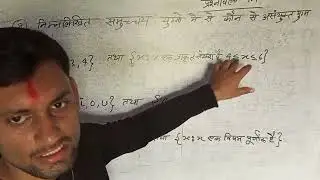 प्रश्नावली
(2) निम्नलिखित समुच्चय युग्मों में से कौन से असंयुक्त युग्म
, 4} तथा {x : x एक प्राकृत संख्या है 4 ≤ x ≤ 6}
i, o, u} तथा
तथा {x : x एक विषम पूर्णांक है}